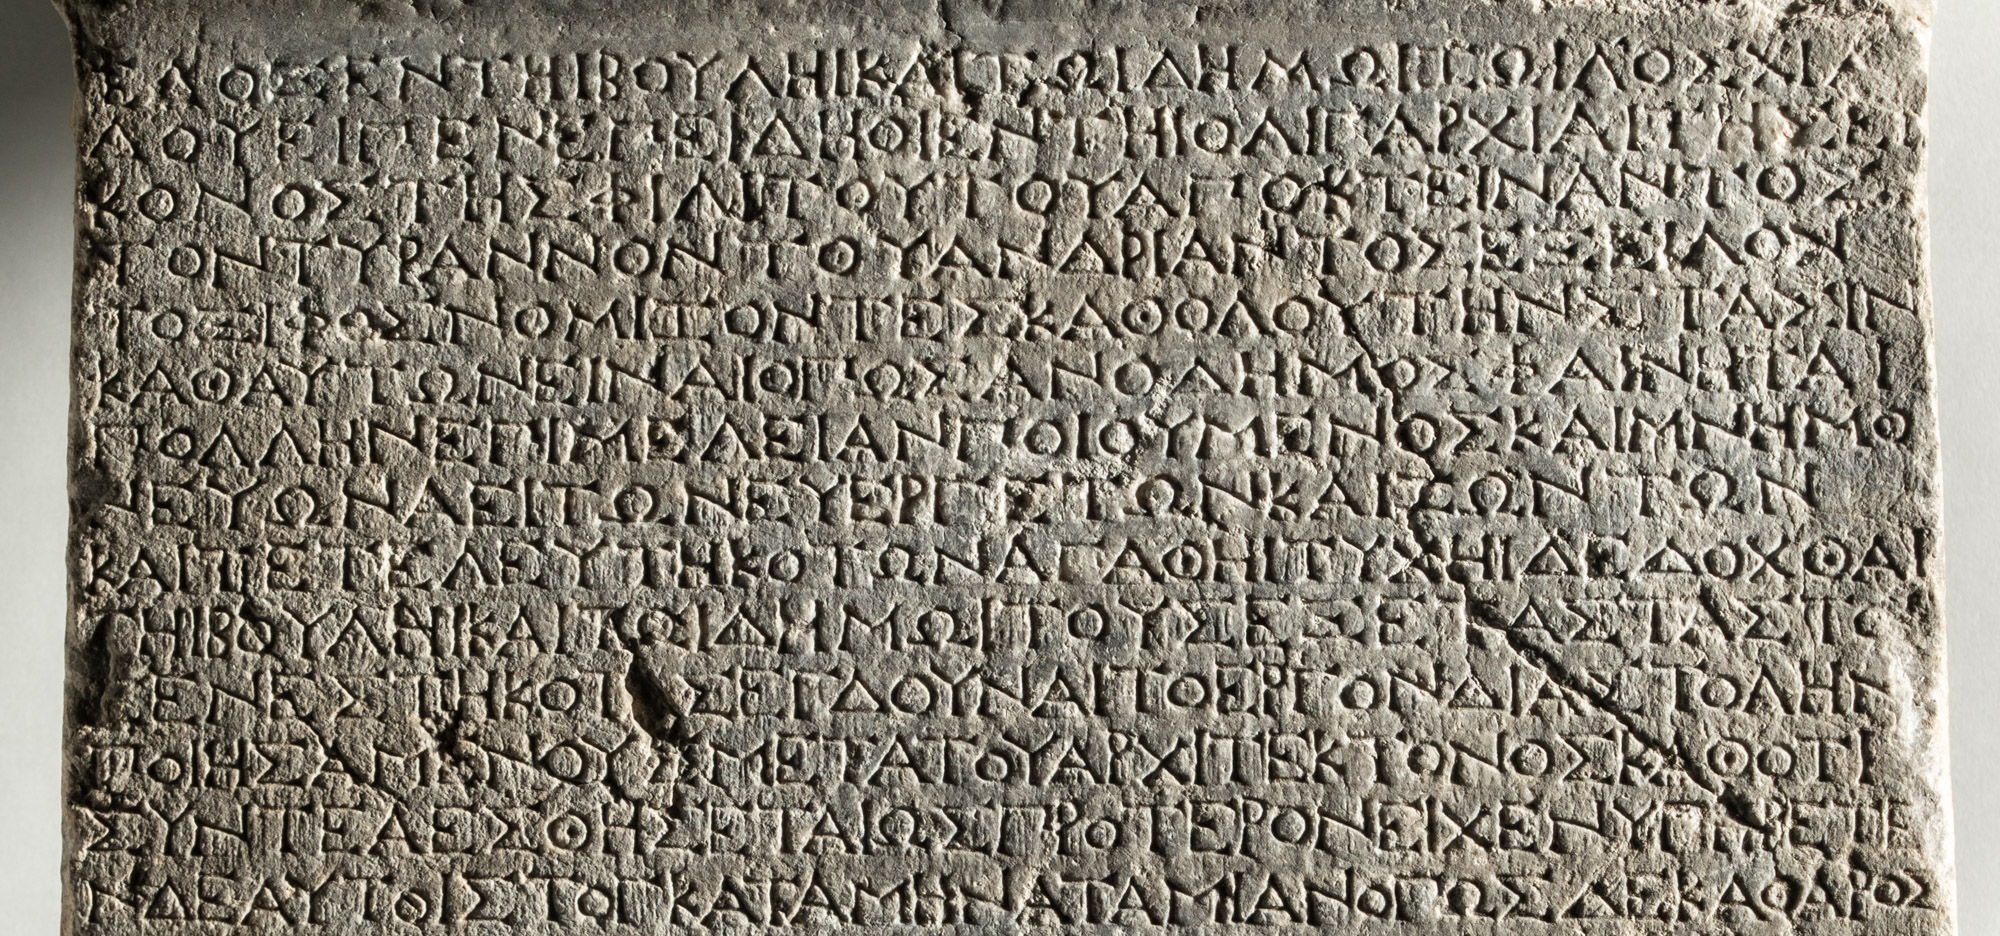 ΕΔΟΞΕΝΤΗΙΒΟΥΛΗΙΚΑΙΤΩΙΔΗΜΩΙΖΩΙΛΟΣΧΙΑ
ΔΟΥΕΙΠΕΝΕΠΕΙΔΗΟΙΕΝΤΗΙΟΛΙΓΑΡΧΙΑΙΤΗΣΕΙ
ΚΟΝΟΣΤΗΣΦΙΛΙΤΟΥΤΟΥΑΠΟΚΤΕΙΝΑΝΤΟΣ
ΤΟΝΤΥΡΑΝΝΟΝΤΟΥΑΝΔΡΙΑΝΤΟΣΕΞΕΙΛΟΝ
ΤΟΞΙΦΟΣΝΟΜΙΖΟΝΤΕΣΚΑΘΟΛΟΥΤΗΝΣΤΑΣΙΝ
ΚΑΘΑΥΤΩΝΕΙΝΑΙΟΠΩΣΑΝΟΔΗΜΟΣΦΑΙΝΗΤΑΙ
ΠΟΛΛΗΝΕΠΙΜΕΛΕΙΑΝΠΟΙΟΥΜΕΝΟΣΚΑΙΜΝΗΜΟ
ΝΕΥΩΝΑΕΙΤΩΝΕΥΕΡΓΕΤΩΝΚΑΙΖΩΝΤΩΝ
ΚΑΙΤΕΤΕΛΕΥΤΗΚΟΤΩΝΑΓΑΘΗΙΤΥΧΗΙΔΕΔΟΧΘΑΙ
ΤΗΙΒΟΥΛΗΙΚΑΙΤΩΙΔΗΜΩΙΤΟΥΣΕΞΕΤΑΣΤΑΣΤΟ
ΕΝΕΣΤΗΚΟΤΑΣΕΓΔΟΥΝΑΙΤΟΕΡΓΟΝΔΙΑΣΤΟΛΗΝ
ΠΟΙΗΣΑΜΕΝΟΥΣΜΕΤΑΤΟΥΑΡΧΙΤΕΚΤΟΝΟΣΚΑΘΟΤΙ
ΣΥΝΤΕΛΕΣΘΗΣΕΤΑΙΩΣΠΡΟΤΕΡΟΝΕΙΧΕΝΥΠΗΡΕΤΕΙ
ΝΔΕΑΥΤΟΙΣΤΟΓΚΑΤΑΜΗΝΑΤΑΜΙΑΝΟΠΩΣΔΕΚΑΘΑΡΟΣ